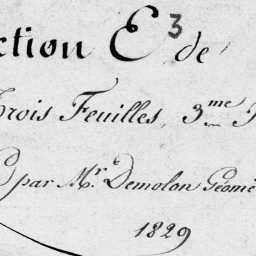 ction E 3 de
Trois Feuilles, 3me
par Mr. Demolon Géomè
1829